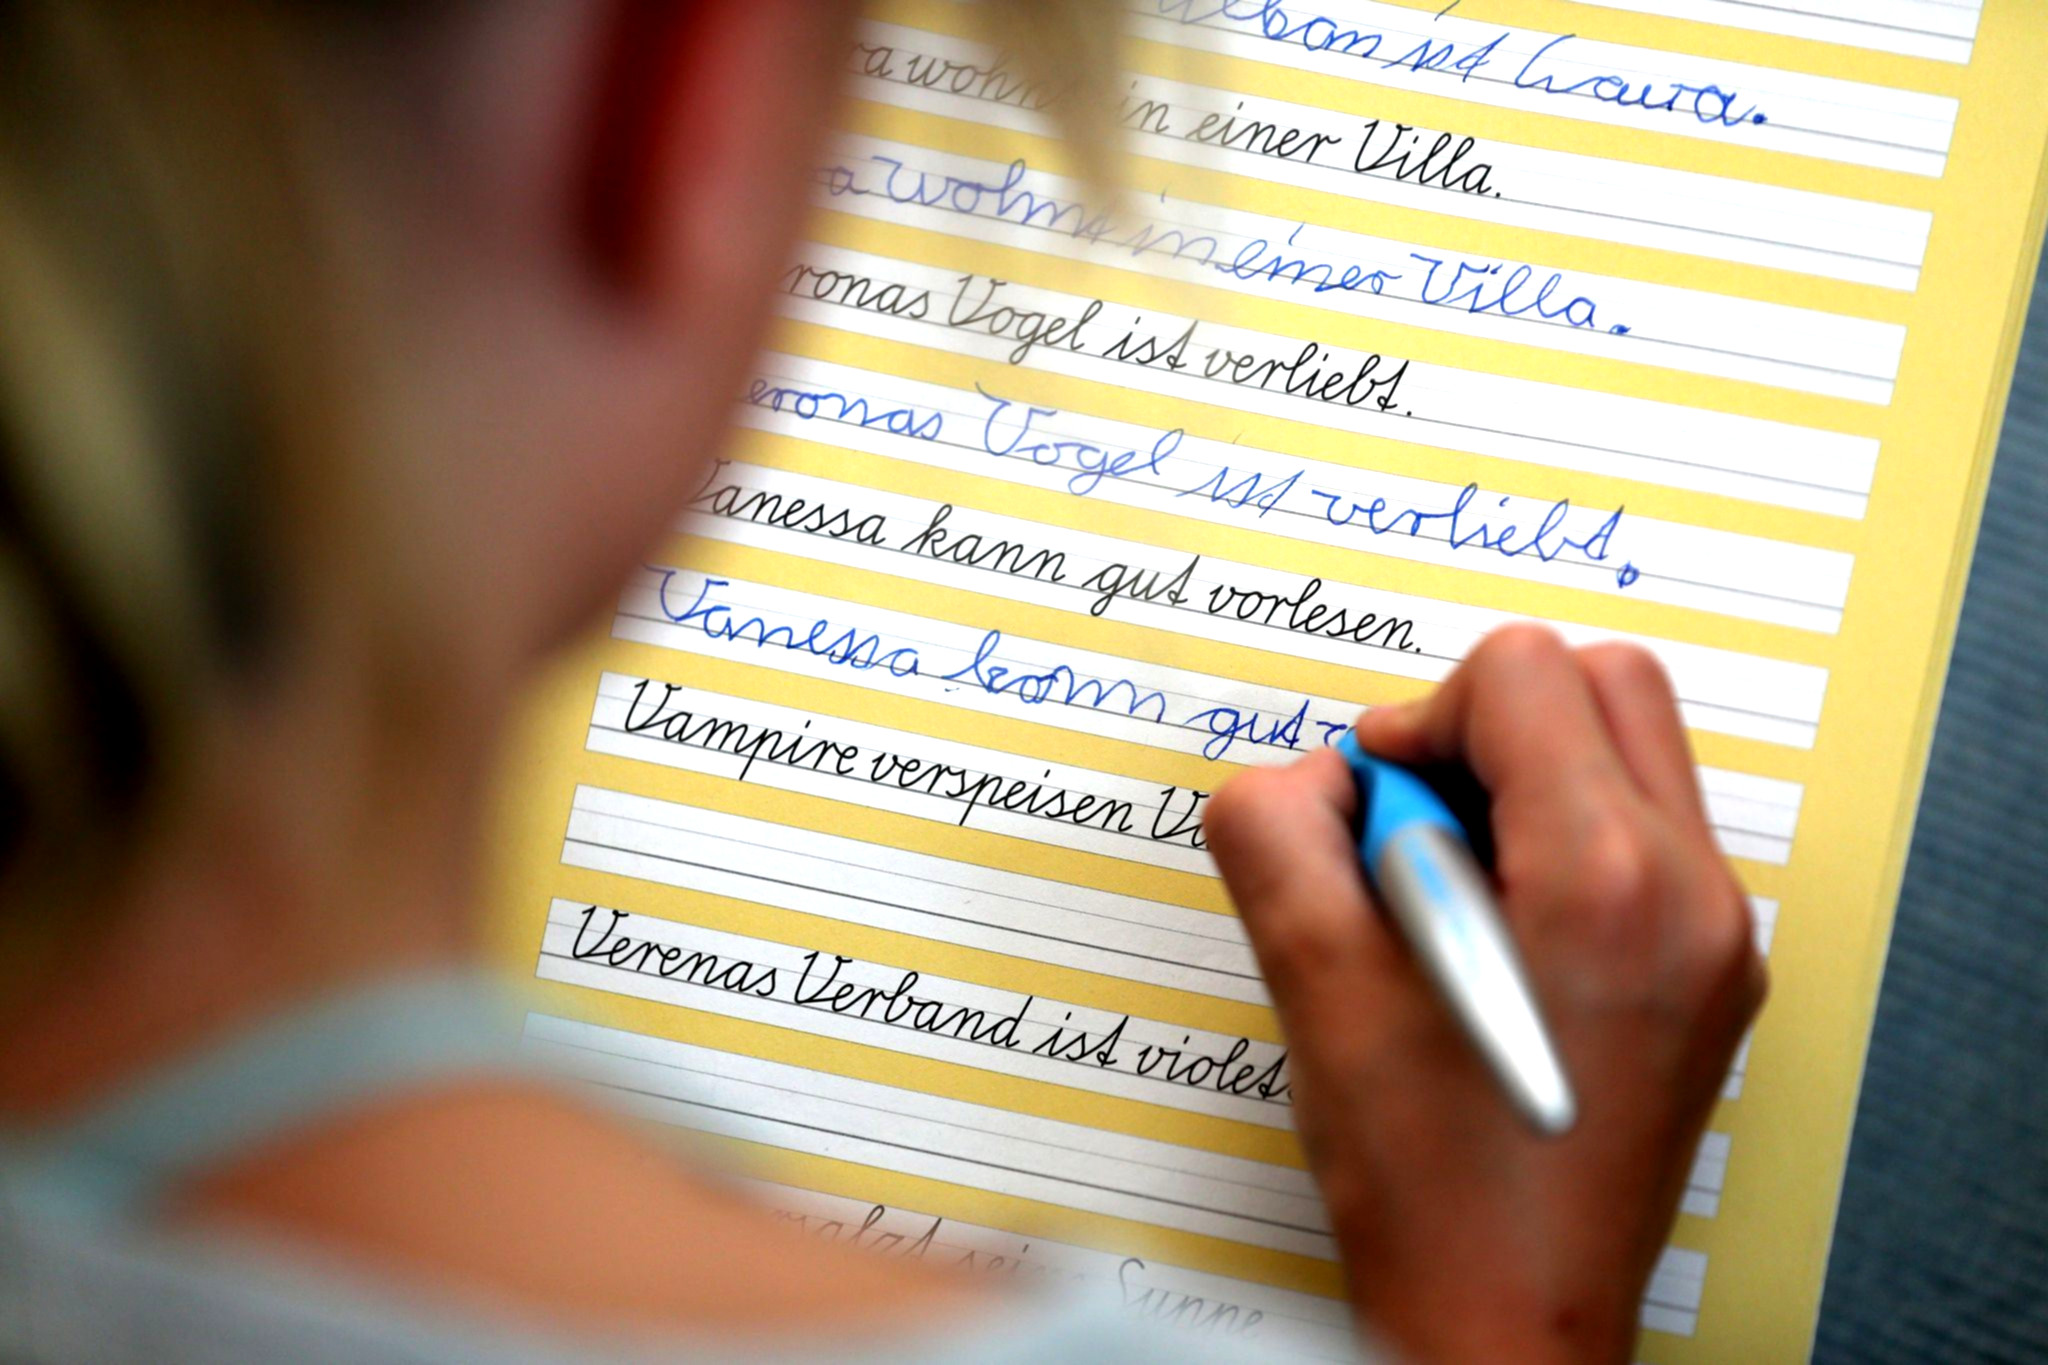 ist
wohnt in einer Villa.
a wohnt in einer Villa.
ronas Vogel ist verliebt.
eronas Vogel ist verliebt.
Vanessa kann gut vorlesen.
Vanessa kann gut v
Vampire verspeisen
Verenas Verband ist violett.
Suppe